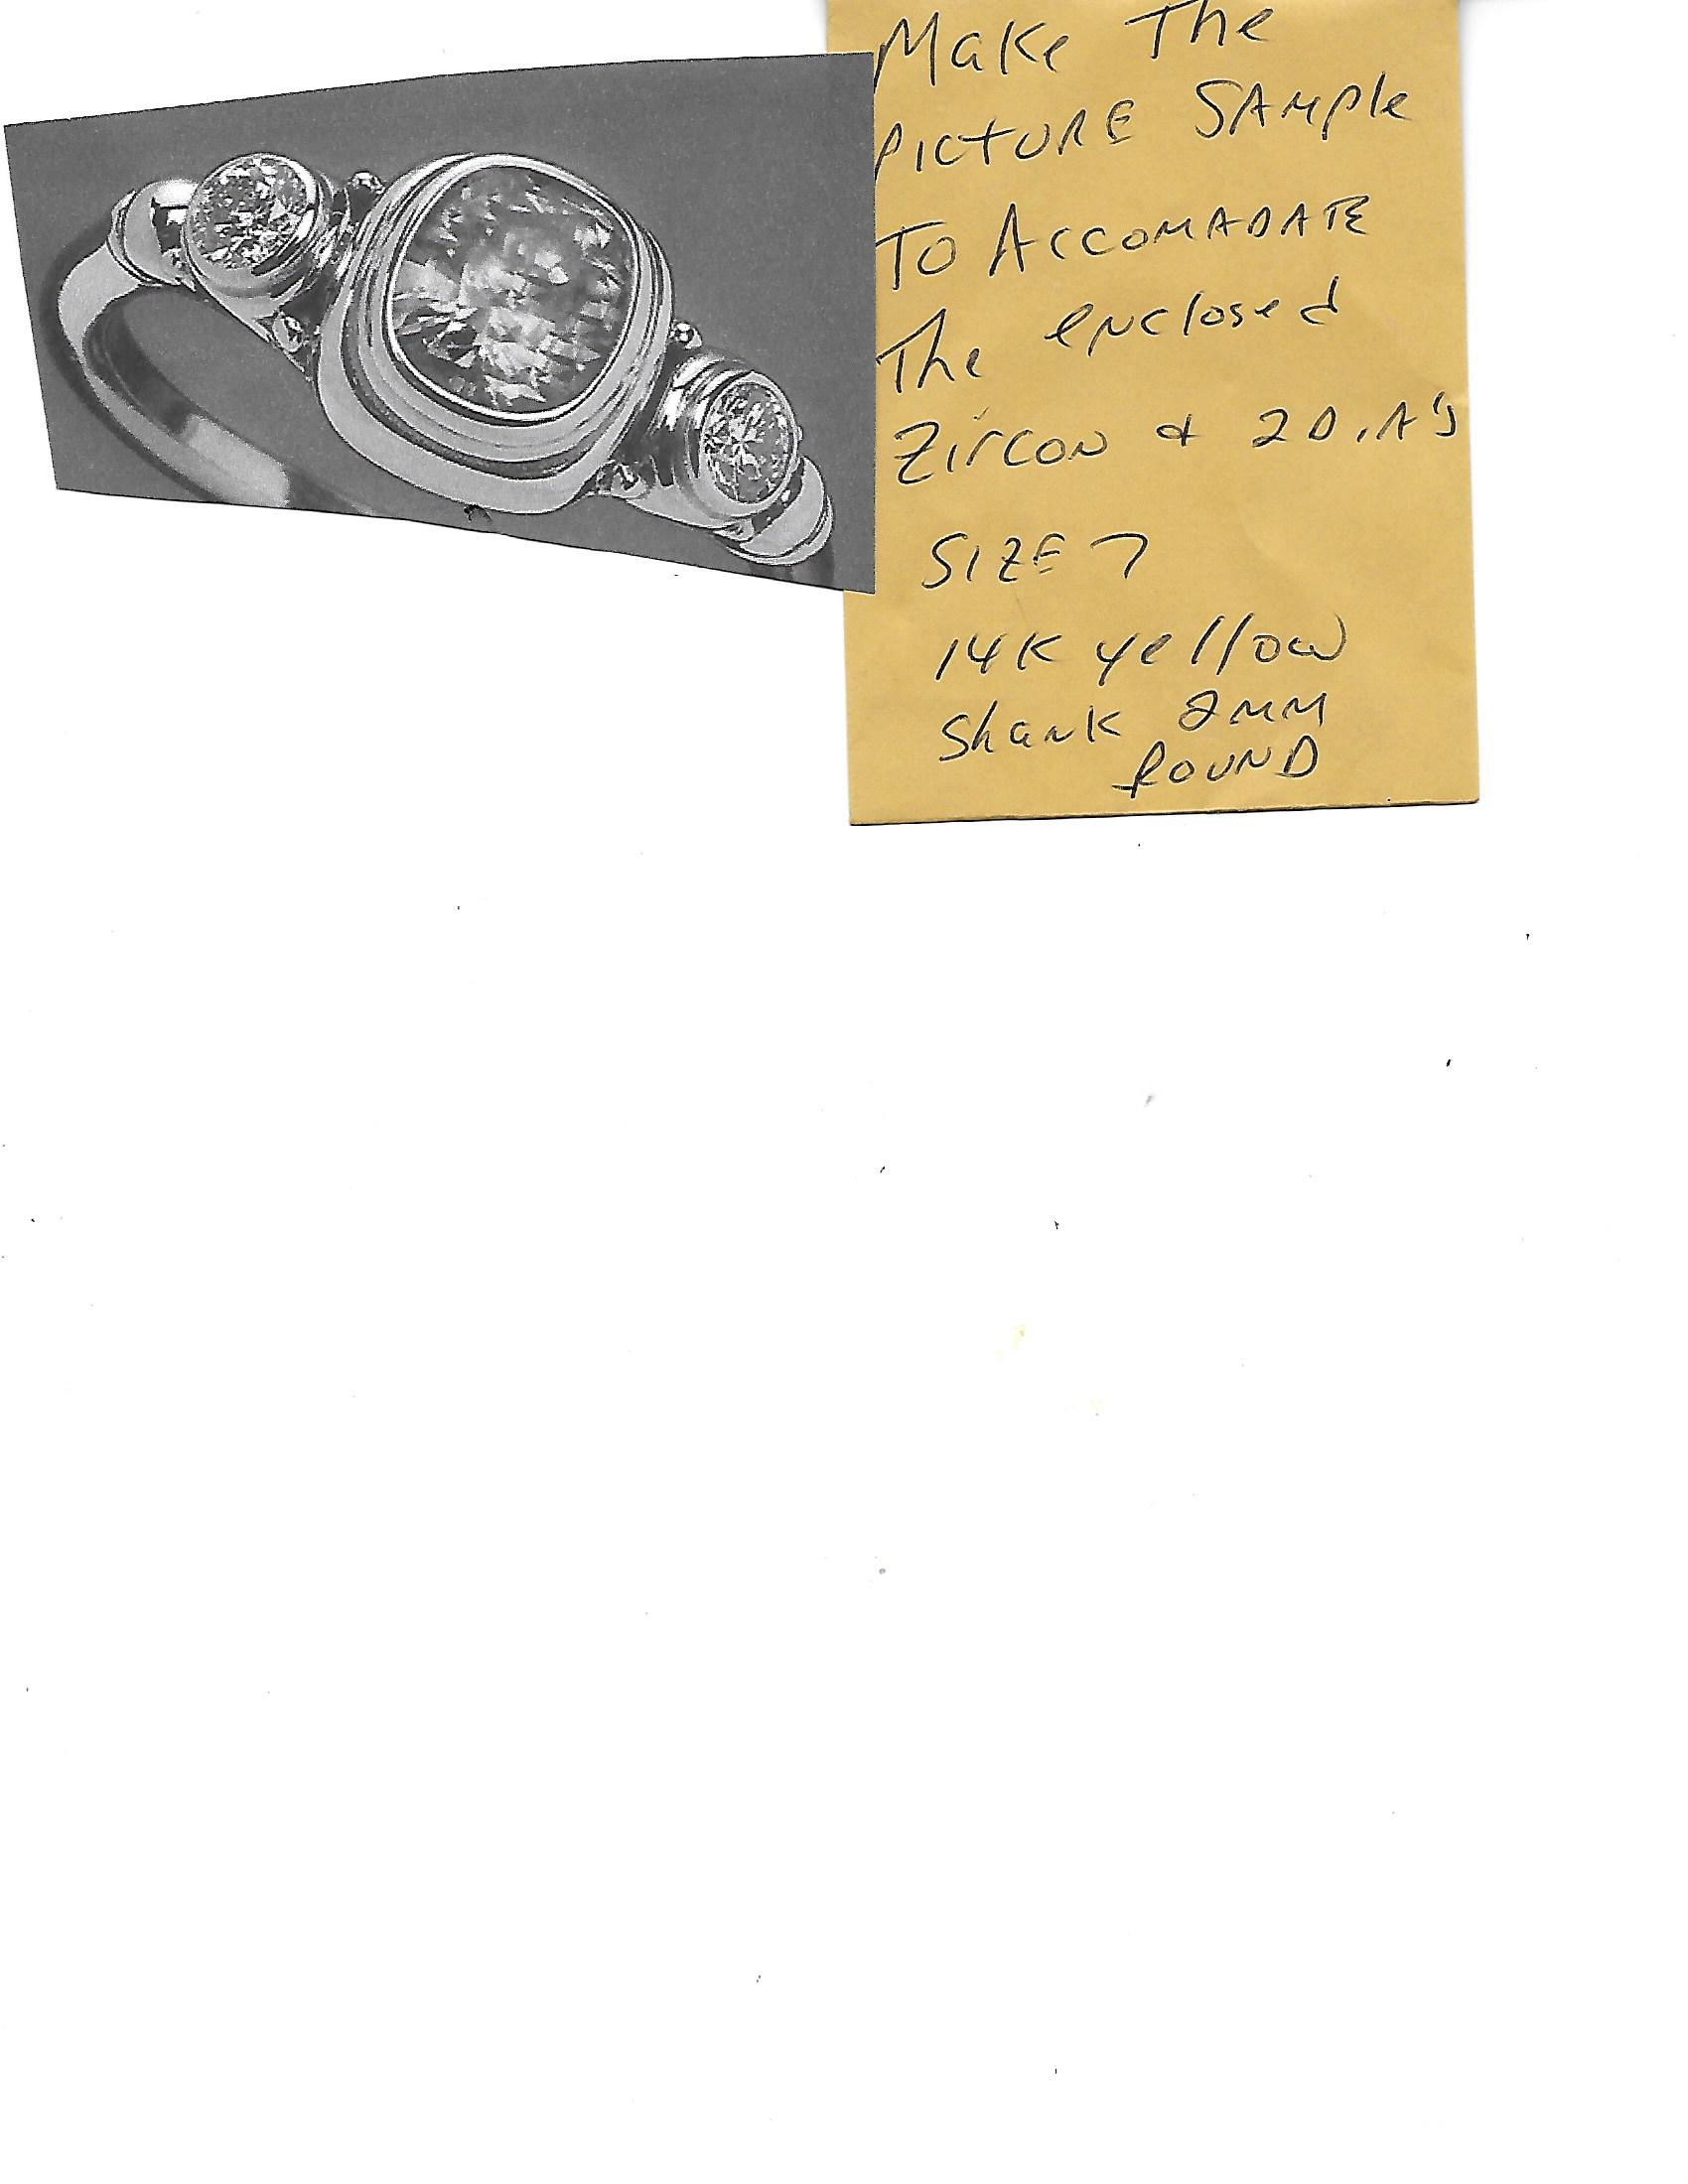 Make The
PICTURE SAMPle
TO ACCOMADATE
The enclosed
Zircon & 2 DIA's
SIZE 7
14K yellow
Shank 2MM
ROUND